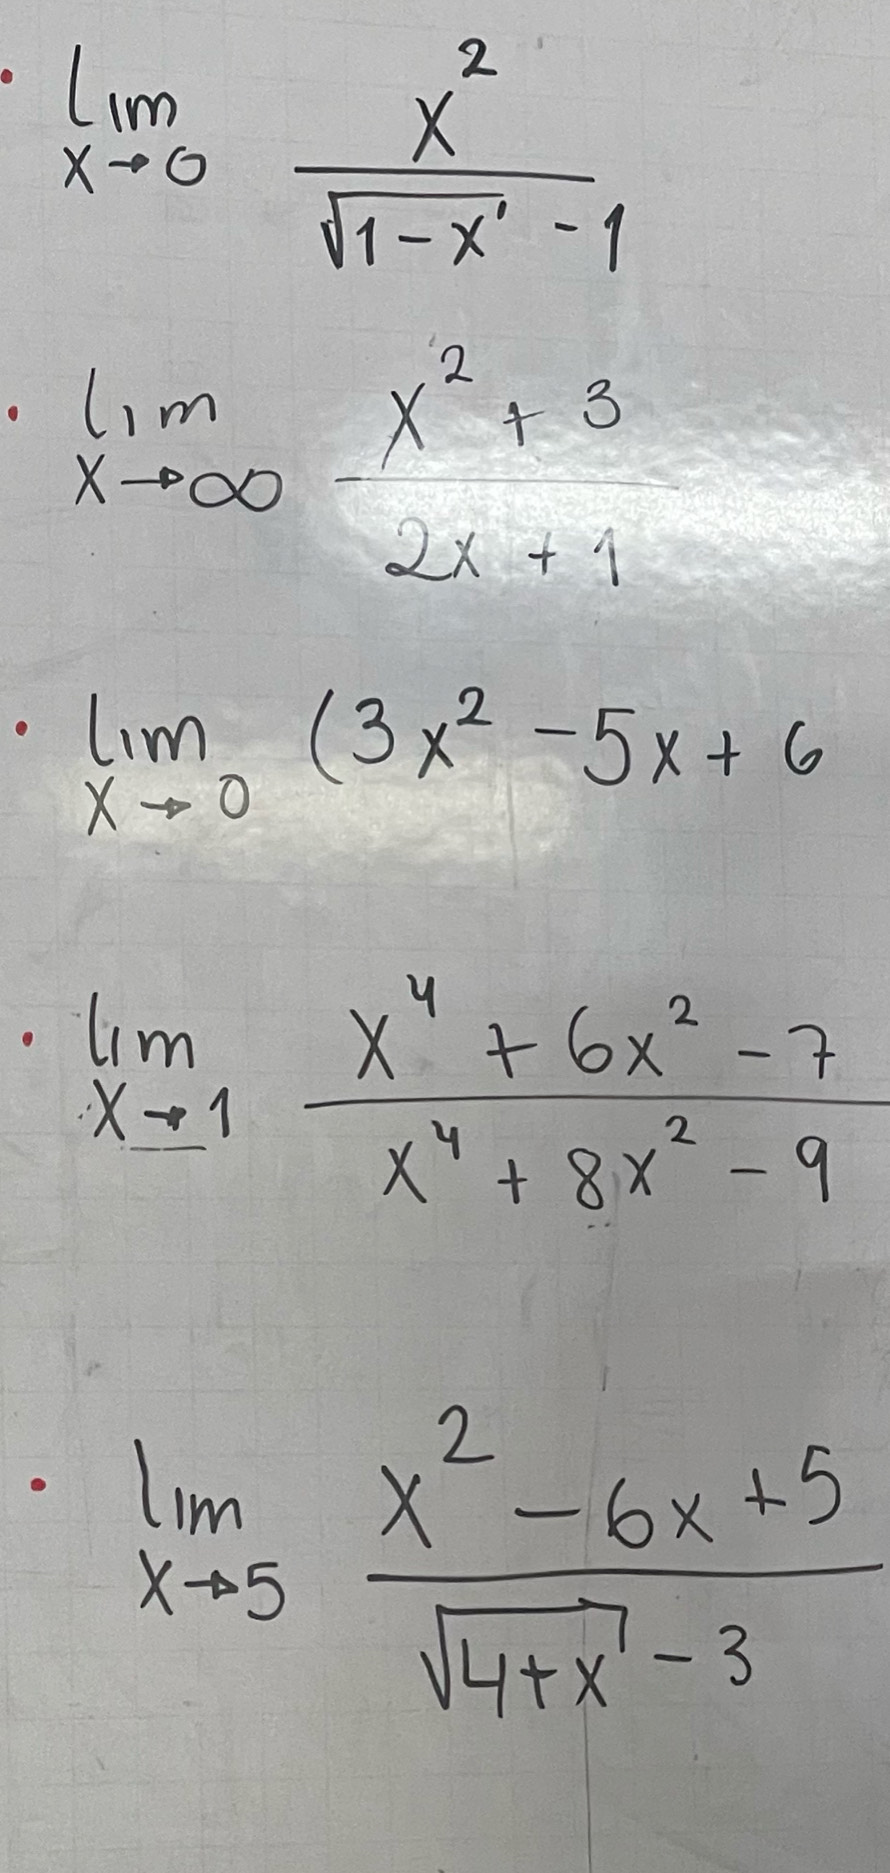 lim x→0 x² / √(1-x) - 1
lim x→∞ x² + 3 / 2x + 1
lim x→0 (3x² - 5x + 6
lim x→1 x⁴ + 6x² - 7 / x⁴ + 8x² - 9
lim x→5 x² - 6x + 5 / √(4+x) - 3